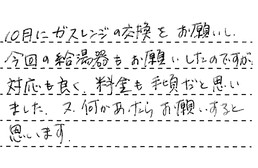 10月にガスレンジの交換をお願いし、
今回の給湯器もお願いしたのですが
対応も良く、料金も手頃だと思い
ました。又、何かあったらお願いすると
思います。